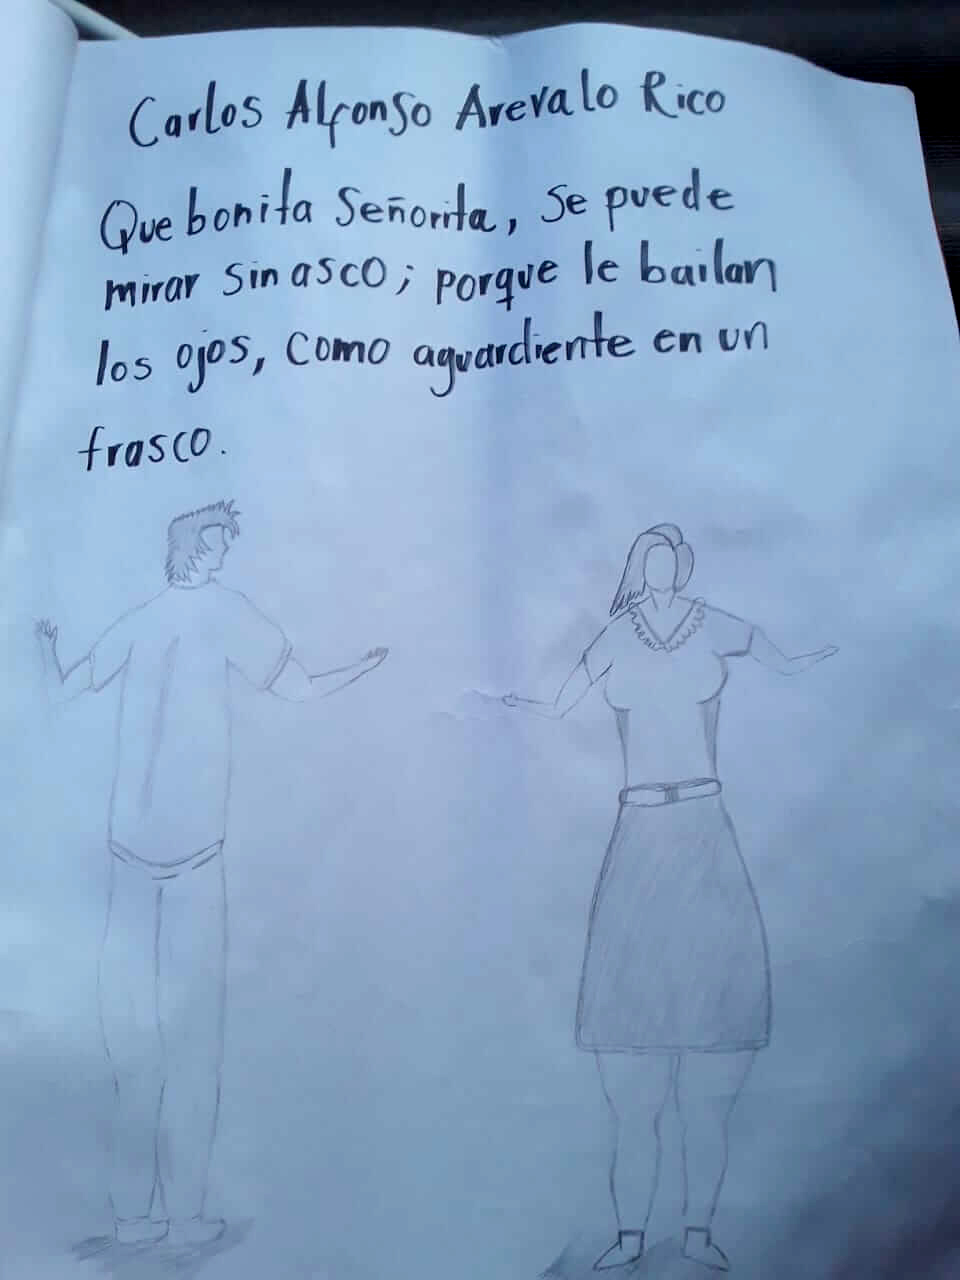 Carlos Alfonso Arevalo Rico
Que bonita Señorita, se puede
mirar sin asco; porque le bailan
los ojos, como aguardiente en un
frasco.